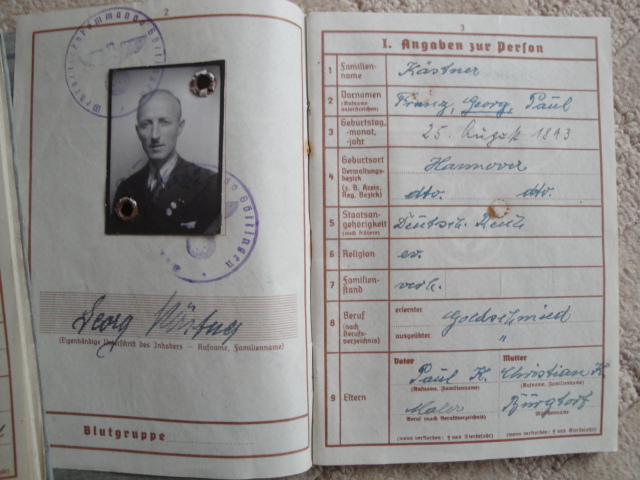 2
Wehrbezirkskommando Göttingen
Göttingen
Georg Kästner
(Eigenhändige Unterschrift des Inhabers — Rufname, Familienname)
Blutgruppe
3
I. Angaben zur Person
1 Familien-
name
Kästner
2 Vornamen
(Rufname
unterstreichen)
Franz, Georg, Paul
3 Geburtstag,
-monat,
-jahr
25. August 1893
4 Geburtsort
Verwaltungs-
bezirk
(z. B. Kreis,
Reg. Bezirk)
Hannover
dto. dto.
5 Staatsan-
gehörigkeit
(auch frühere)
Deutsch. Reich
6 Religion
ev.
7 Familien-
stand
verh.
8 Beruf
(nach
Berufs-
verzeichnis)
erlernter
Goldschmied
ausgeübter
"
9 Eltern
Vater
Paul K.
(Rufname, Familienname)
Maler
Beruf (nach Berufsverzeichnis)
(wenn verstorben: † und Sterbejahr)
Mutter
Christian K.
(Rufname, Familienname)
Burgtorf
Mädchenname
(wenn verstorben: † und Sterbejahr)